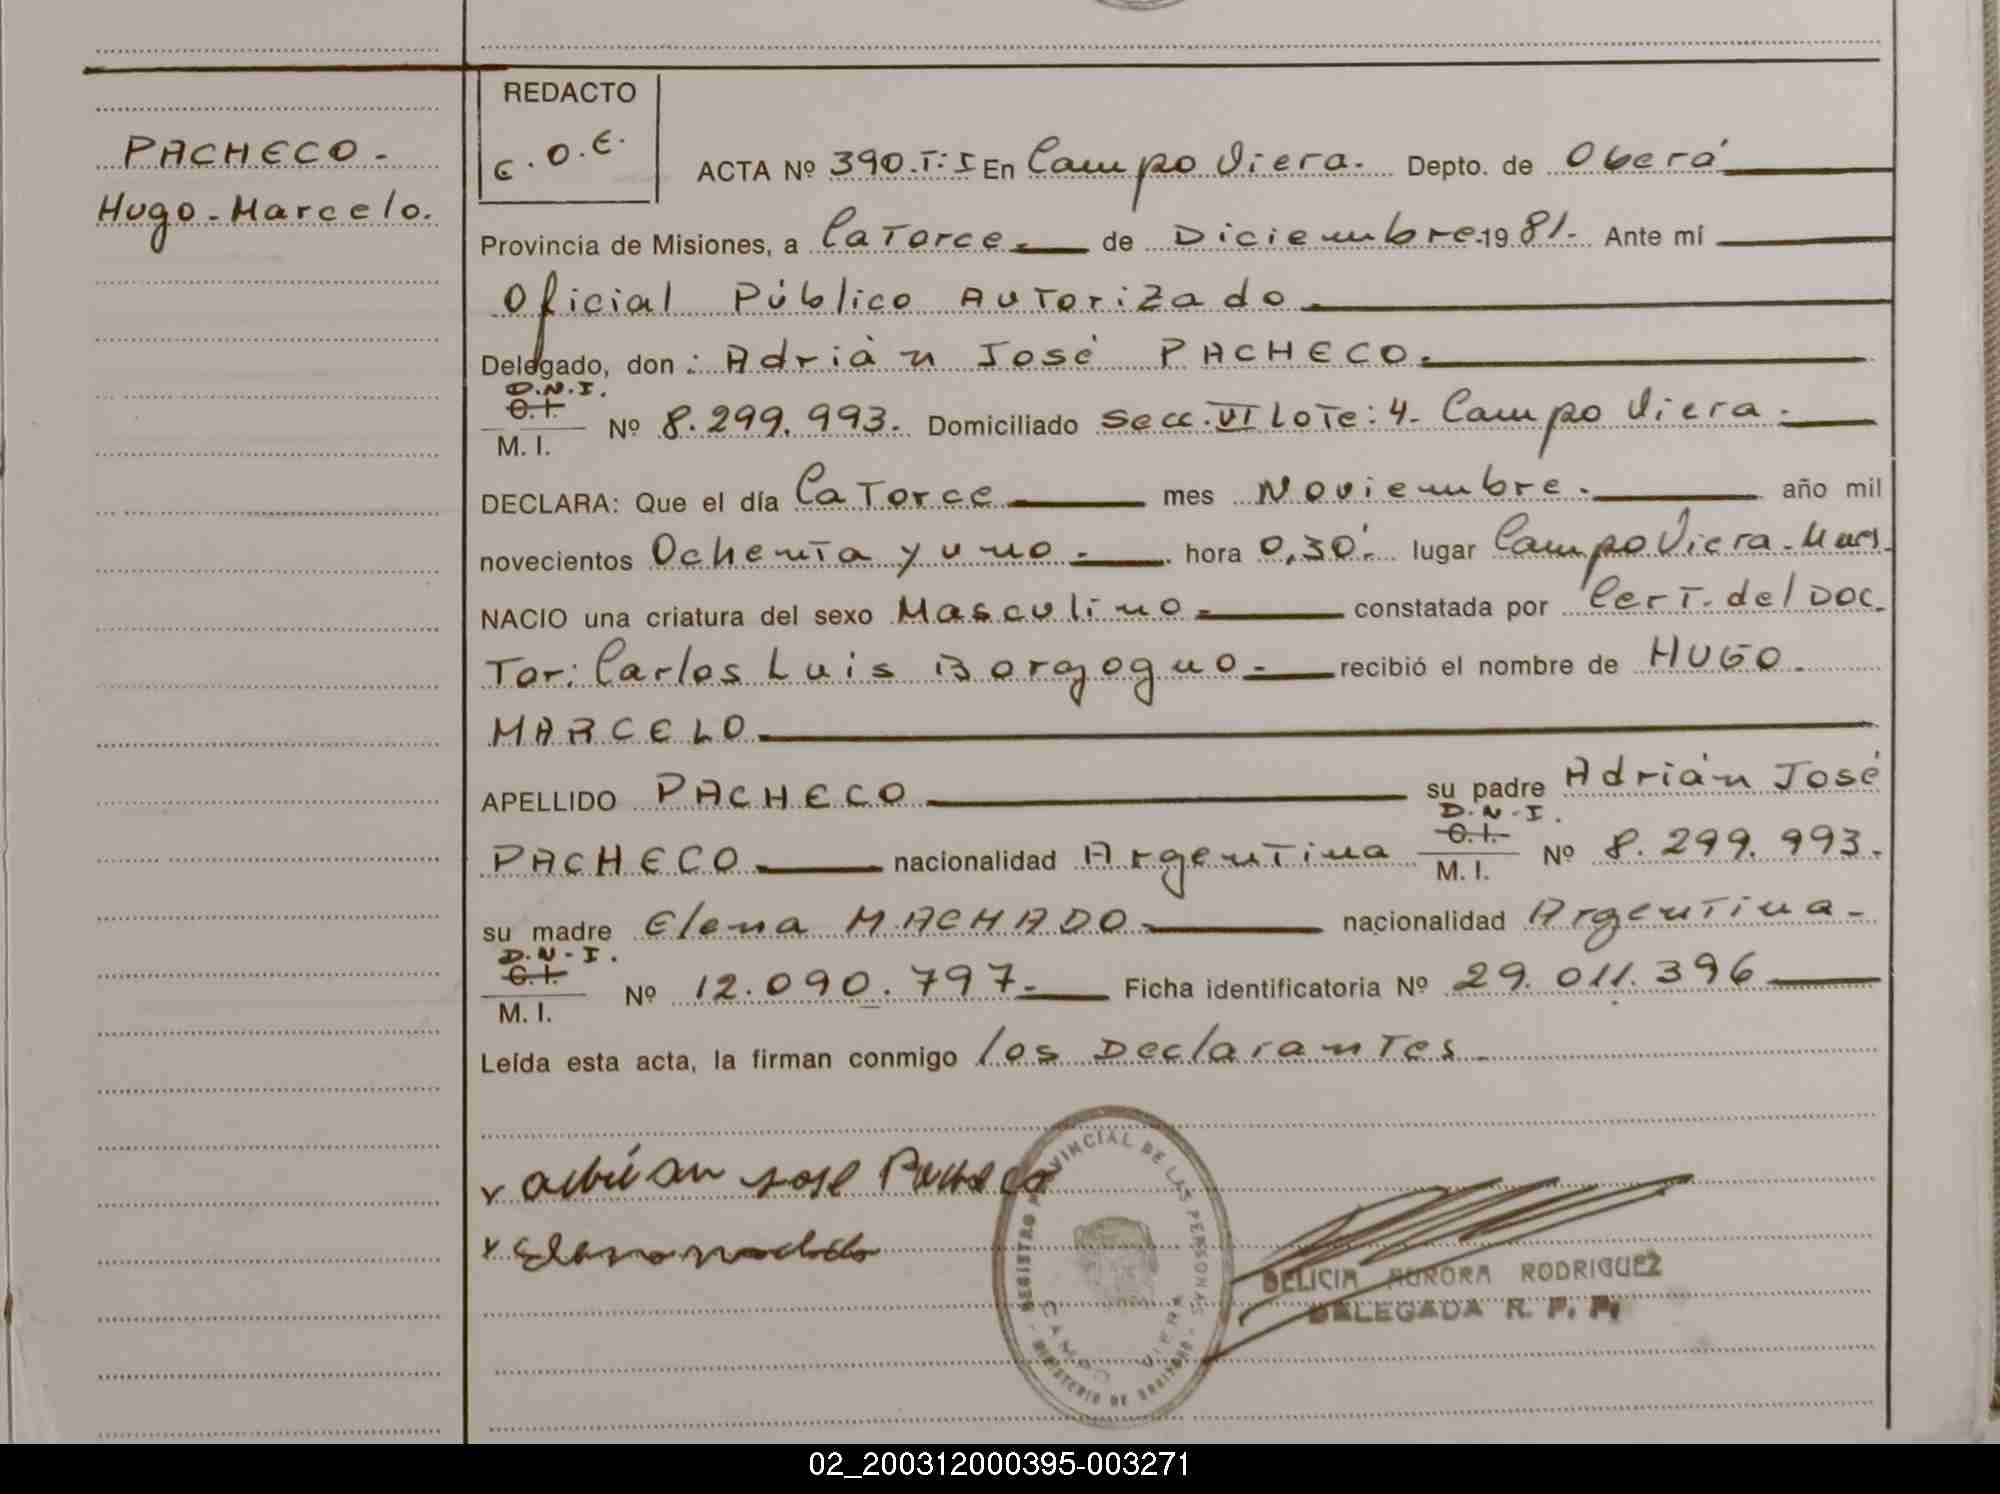 REDACTO
C.O.E.
PACHECO.-
Hugo-Marcelo.
ACTA Nº 390.T:I En Campo Viera. Depto. de Oberá
Provincia de Misiones, a Catorce.- de Diciembre-1981.- Ante mí
Oficial Público Autorizado
Delegado, don: Adrián José PACHECO.
D.N.I.
C.I.
M. I. Nº 8.299.993. Domiciliado Secc.VI Lote:4- Campo Viera.-
DECLARA: Que el día Catorce mes Noviembre.- año mil
novecientos Ochenta y uno.- hora 0,30'.- lugar Campo Viera-
NACIO una criatura del sexo Masculino.- constatada por Cert. del Doc.
Tor: Carlos Luis Borgogno.- recibió el nombre de HUGO.-
MARCELO
APELLIDO PACHECO su padre Adrián José
PACHECO nacionalidad Argentina D.N.I. C.I. M. I. Nº 8.299.993.-
su madre Elena MACHADO nacionalidad Argentina-
D.N-I.
C.I.
M. I. Nº 12.090.797.- Ficha identificatoria Nº 29.011.396
Leída esta acta, la firman conmigo los Declarantes.-
Adrian Jose Pacheco
Elena Machado
REGISTRO PROVINCIAL DE LAS PERSONAS
CAMPO VIERA
MINISTERIO DE GOBIERNO
DELICIA AURORA RODRIGUEZ
DELEGADA R. P. P.
02_200312000395-003271